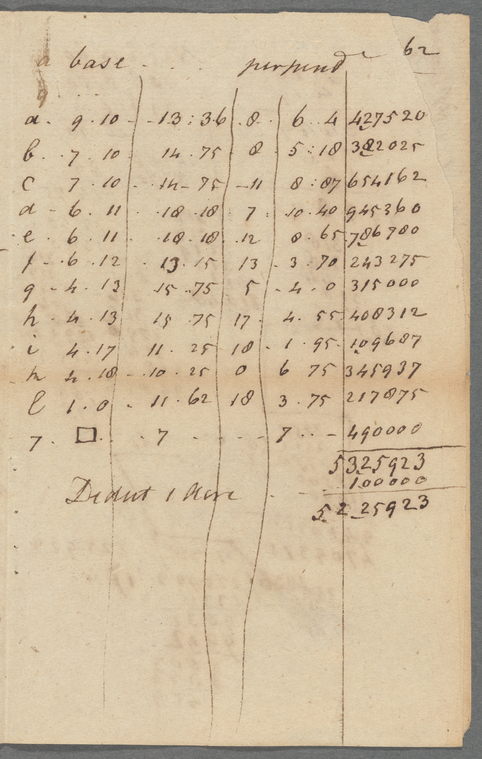 62
a base . . . . perpend
g . . .
a - 9 . 10 - 13 : 36 8 - 6 . 4 427520
b - 7 . 10 14 . 75 8 5 : 18 382025
c 7 . 10 - 14 - 75 - 11 8 : 87 654162
d - 6 . 11 . 18 . 18 7 . 10 . 40 945360
e . 6 . 11 . 18 . 18 . 12 8 . 65 786780
f - 6 . 12 . 13 . 15 13 - 3 . 70 243275
g - 4 . 13 15 . 75 5 - 4 . 0 315000
h - 4 . 13 15 . 75 17 4 . 55 408312
i 4 . 17 11 . 25 - 18 - 1 . 95 - 109687
k 4 . 18 - 10 . 25 0 6 75 345937
l 1 . 0 - 11 . 62 18 3 . 75 217875
7 . □ . . 7 . . . . 7 . . - 490000
5325923
Deduct 1 Acre - . . 100000
5225923